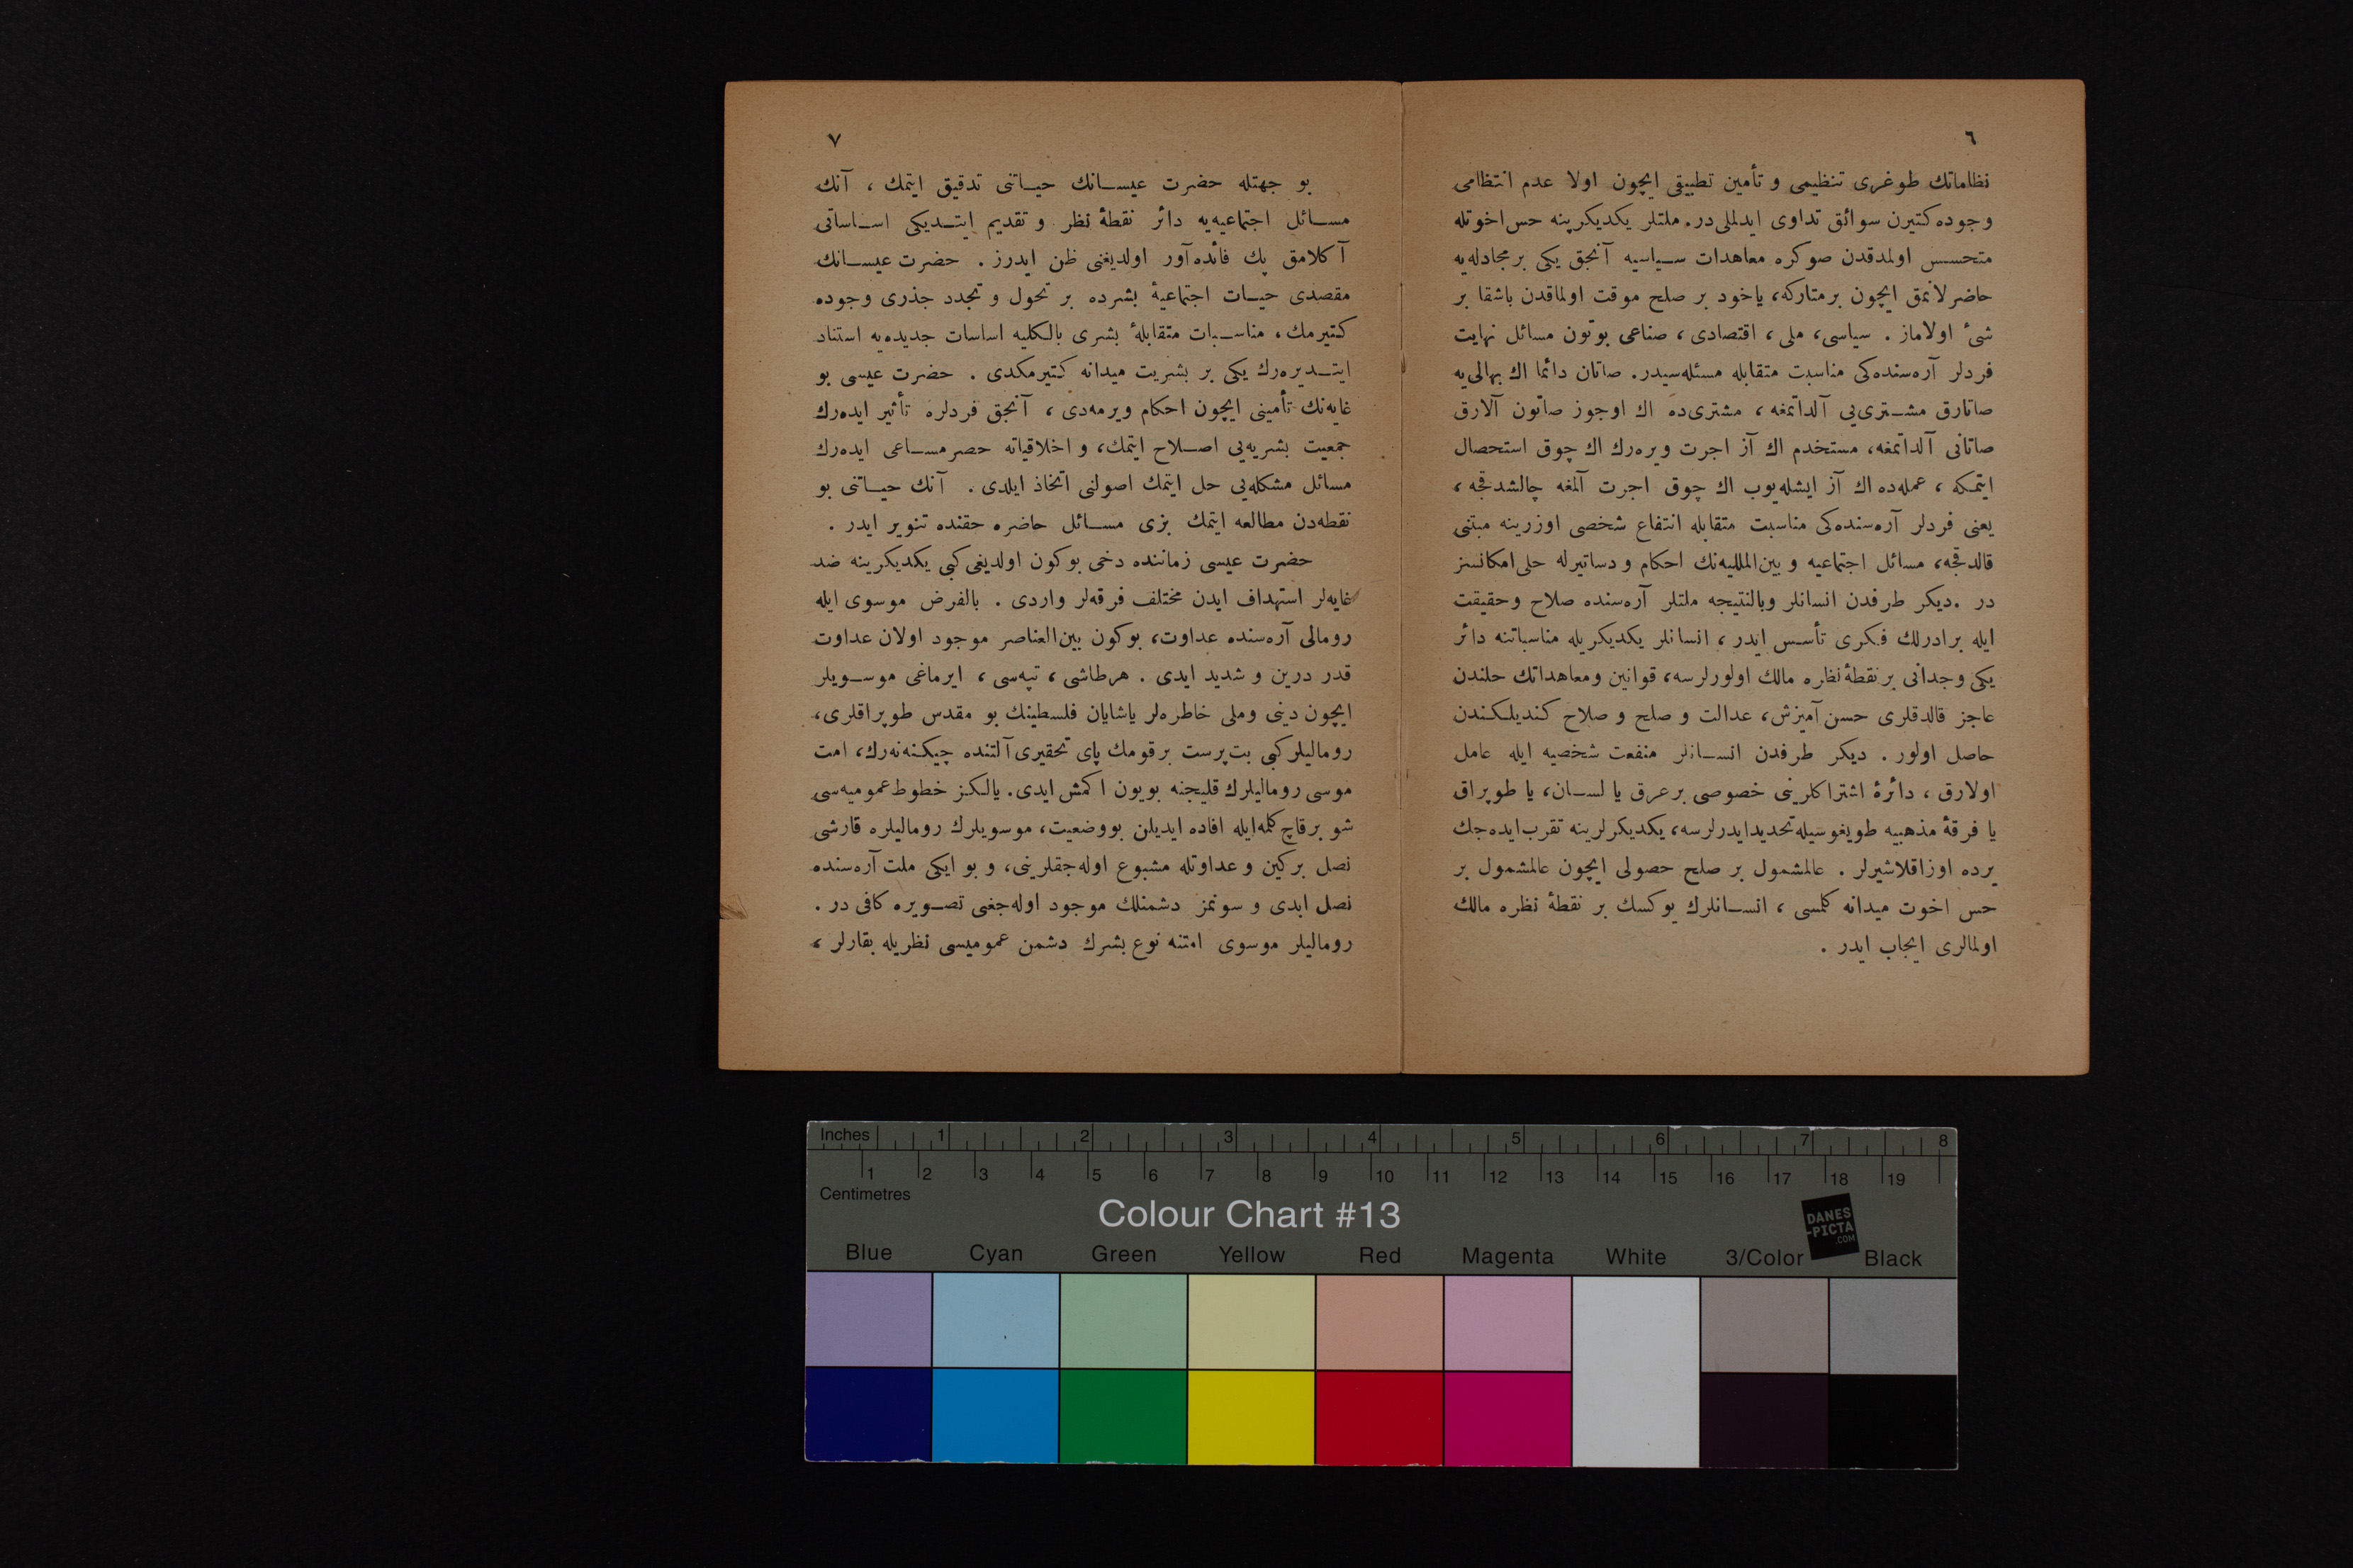 ٦
نظاماتك طوغری تنظیمی و تأمین تطبیقی ایچون اولا عدم انتظامی
وجوده کتیرن سوائق تداوی ایدلملی در. ملتلر یکدیکرینه حس اخوتله
متحسس اولمدقدن صوکره معاهدات سیاسیه آنجق یکی بر مجادله‌یه
حاضرلانمق ایچون بر متارکه، یاخود بر صلح موقت اولماقدن باشقا بر
شیٔ اولاماز . سیاسی، ملی، اقتصادی، صناعی بوتون مسائل نهایت
فردلر آره‌سنده‌کی مناسبت متقابله مسئله‌سیدر. صاتان دائما اك بهالی‌یه
صاتارق مشتری‌یی آلداتمغه، مشتری‌ده اك اوجوز صاتون آلارق
صاتانی آلداتمغه، مستخدم اك آز اجرت ویره‌رك اك چوق استحصال
ایتمکه، عمله‌ده اك آز ایشله‌یوب اك چوق اجرت آلمغه چالشدقجه،
یعنی فردلر آره‌سنده‌کی مناسبت متقابله انتفاع شخصی اوزرینه مبتنی
قالدقجه، مسائل اجتماعیه و بین‌المللیه‌نك احکام و دساتیرله حلی امکانسز
در .دیکر طرفدن انسانلر وبالنتیجه ملتلر آره‌سنده صلاح وحقیقت
ایله برادرلك فکری تأسس ایدر، انسانلر یکدیکریله مناسباتنه دائر
یکی وجدانی بر نقطۀ نظره مالك اولورلرسه، قوانین ومعاهداتك حلندن
عاجز قالدقلری حسن آمیزش، عدالت و صلح و صلاح کندیلکندن
حاصل اولور . دیکر طرفدن انسانلر منفعت شخصیه ایله عامل
اولارق، دائرۀ اشتراکلرینی خصوصی بر عرق یا لسان، یا طوپراق
یا فرقۀ مذهبیه طویغوسیله تحدید ایدرلرسه، یکدیکرلرینه تقرب ایده‌جك
یرده اوزاقلاشیرلر . عالمشمول بر صلح حصولی ایچون عالمشمول بر
حس اخوت میدانه کلمسی، انسانلرك یوکسك بر نقطۀ نظره مالك
اولمالری ایجاب ایدر .
٧
بو جهتله حضرت عیسانك حیاتنی تدقیق ایتمك ، آنك
مسائل اجتماعیه‌یه دائر نقطۀ نظر و تقدیم ایتدیکی اساساتی
آکلامق پك فائده‌آور اولدیغنی ظن ایدرز . حضرت عیسانك
مقصدی حیات اجتماعیۀ بشرده بر تحول و تجدد جذری وجوده
کتیرمك، مناسبات متقابلۀ بشری بالکلیه اساسات جدیده‌یه استناد
ایتدیره‌رك یکی بر بشریت میدانه کتیرمکدی . حضرت عیسی بو
غایه‌نك تأمینی ایچون احکام ویرمه‌دی، آنجق فردلره تأثیر ایده‌رك
جمعیت بشریه‌یی اصلاح ایتمك، و اخلاقیاته حصر مساعی ایده‌رك
مسائل مشکله‌یی حل ایتمك اصولنی اتخاذ ایلدی . آنك حیاتنی بو
نقطه‌دن مطالعه ایتمك بزی مسائل حاضره حقنده تنویر ایدر .
حضرت عیسی زماننده دخی بوکون اولدیغی کبی یکدیکرینه ضد
غایه‌لر استهداف ایدن مختلف فرقه‌لر واردی . بالفرض موسوی ایله
رومالی آره‌سنده عداوت، بوکون بین‌العناصر موجود اولان عداوت
قدر درین و شدید ایدی . هرطاشی، تپه‌سی، ایرماغی موسویلر
ایچون دینی وملی خاطره‌لر یاشایان فلسطینك بو مقدس طوپراقلری،
رومالیلر کبی بت‌پرست بر قومك پای تحقیری آلتنده چیکنه‌نه‌رك، امت
موسی رومالیلرك قلیجنه بویون اکمش ایدی. یالکز خطوط عمومیه‌سی
شو برقاچ کلمه ایله افاده ایدیلن بو وضعیت، موسویلرك رومالیلره قارشی
نصل برکین و عداوتله مشبوع اوله‌جقلرینی، و بو ایکی ملت آره‌سنده
نصل ابدی و سونمز دشمنلك موجود اوله‌جغی تصویره کافی در .
رومالیلر موسوی امتنه نوع بشرك دشمن عمومیسی نظریله بقارلر،
Inches 1 2 3 4 5 6 7 8
1 2 3 4 5 6 7 8 9 10 11 12 13 14 15 16 17 18 19
Centimetres
Colour Chart #13
DANES
-PICTA
.COM
Blue Cyan Green Yellow Red Magenta White 3/Color Black